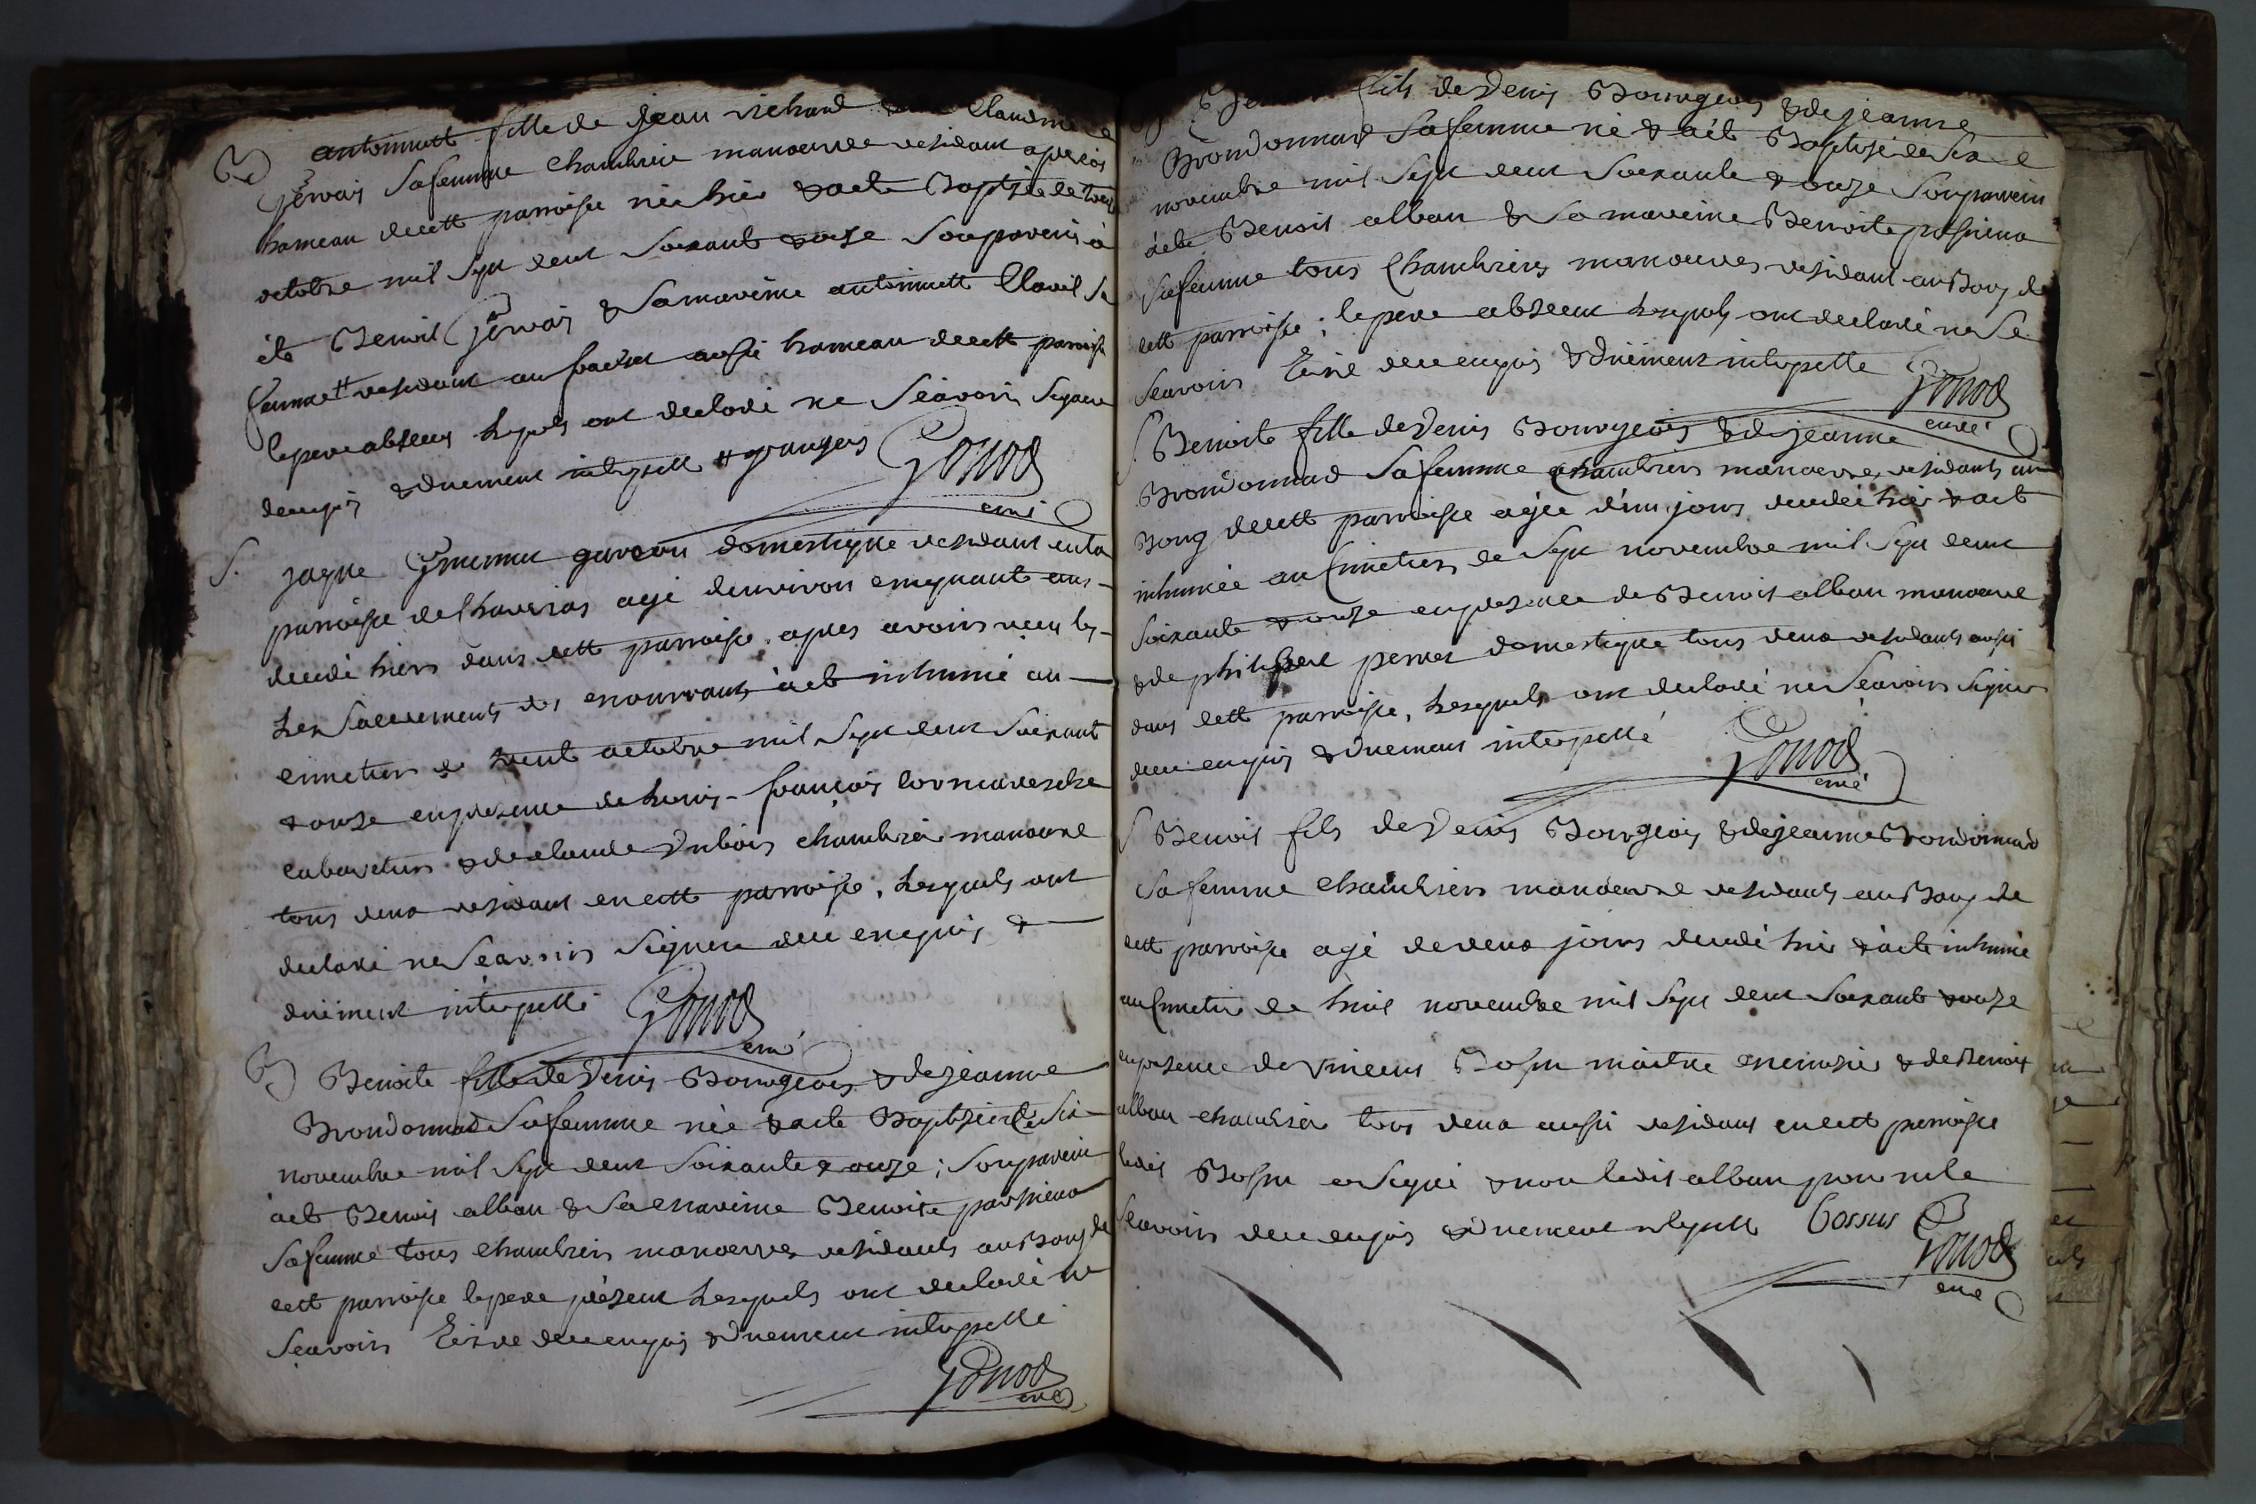 B) antoinette fille de jean richard Claudine
Gervais sa femme chambrier manoeuvre residant
hameau de cett parroisse née hier & a etée Baptisée le
octobre mil sept cent soixante & onze son parein à
été Benoit Gervais & sa mareine antoinette Clavel sa
femme # residant au aussi hameau de cett parroisse
le pere absens lesquels ont declaré ne sçavoir signer
de enquis & duement interpellé # grangers Gonod
curé
S. jaque garcon domestique residant en la
parroisse de Chaveiras agé denviron cinquante ans
decedé hiers dans cette parroisse apres avoir reçu les
les sacrements des mourrants à eté inhumé au
cimetiere le octobre mil sept cent soixante
& onze en presence de Louis françois
cabaretier & de claude Dubois chambrier manoeuvre
tous deux residant en cette parroisse, lesquels ont
declaré ne sçavoir signer de ce enquis &
duement interpellé Gonod
curé
B) Benoite fille de Denis Bourgeois & de jeanne
Brondonnad sa femme née & a ete Baptisée le six
novembre mil sept cent soixante & onze; son parein
à eté Benoit alban & sa mareine Benoite
sa femme tous chambriers manoeuvres residants au Bourg de
cett parroisse le pere présent lesquels ont declaré ne
sçavoir Ecrire de ce enquis & duement interpellé
Gonod
curé
B fils de Denis Bourgeois & de jeanne
Brondonnad sa femme né & a été Baptisé le six
novembre mil sept cent soixante & onze son parein
à eté Benoit alban & sa mareine Benoite
sa femme tous chambriers manoeuvres residant au Bourg de
cett parroisse; le pere absent lesquels ont declaré ne se
sçavoir Ecrire de ce enquis & duëment interpellé Gonod
curé
S Benoite fille de Denis Bourgeois & de jeanne
Brondonnad sa femme chambriers manoeuvres residants au
Bourg de cett parroisse agée d'un jours decedée hier & a eté
inhumée au Cimetiere le sept novembre mil sept cent
soixante & onze en presence de Benoit alban manoeuvre
& de philibert perret domestique tous deux residants aussi
dans cett parroisse, lesquels ont declaré ne sçavoir signer
de ce enquis & duement interpellé Gonod
curé
S Benoit fils de Denis Bourgeois & de jeanne Brondonnad
sa femme chambriers manoeuvre residants au Bourg de
cett parroisse agé de deux jours decedé hier & à eté inhumé
au Cimetiere le huit novembre mil sept cent soixante & onze
en presence de Vincent Bossu maitre & de Benoit
alban chambrier tous deux aussi residant en cett parroisse
ledit Bossu a signé & non ledit alban pour ne le
sçavoir de ce enquis & duement interpellé Bossus Gonod
curé